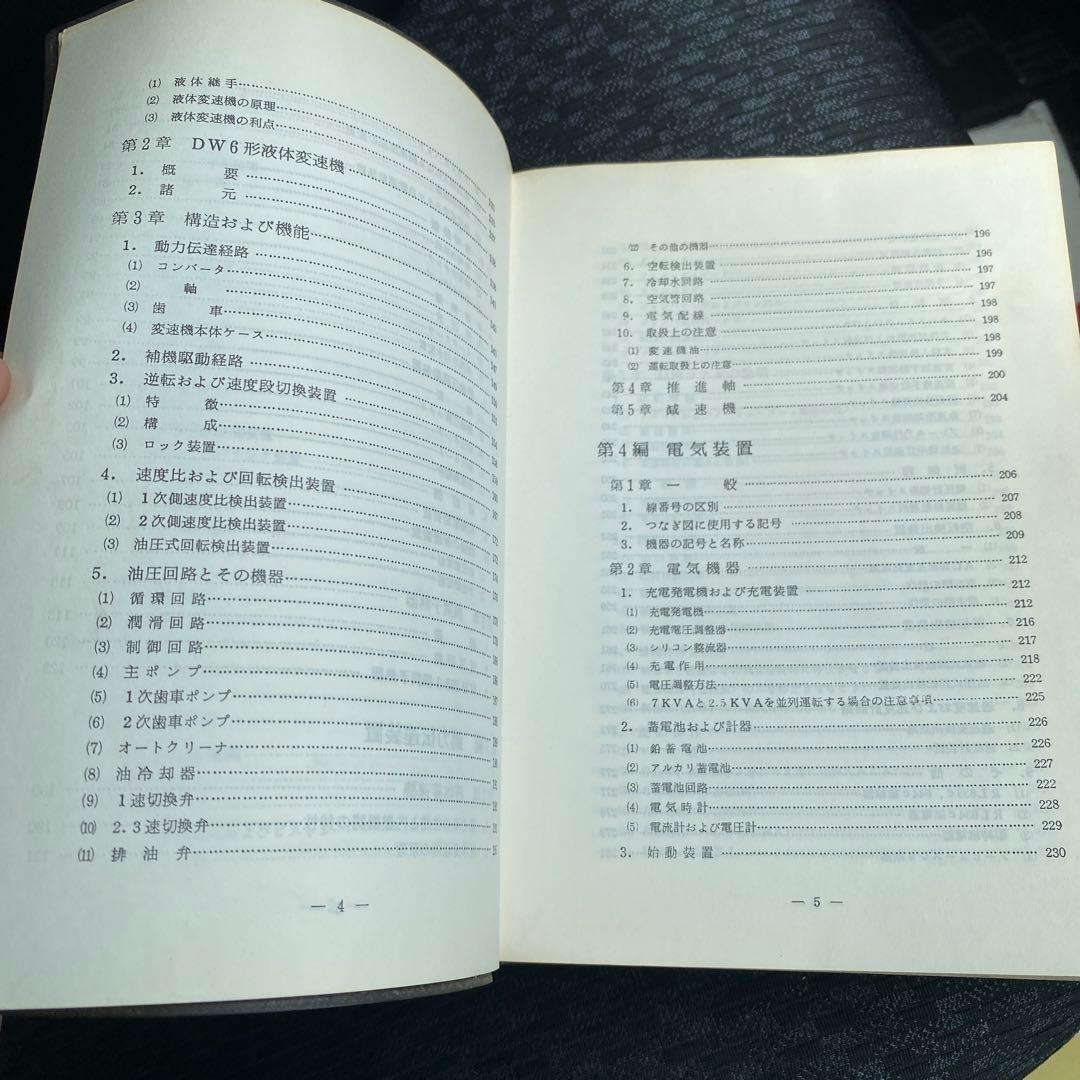 (1) 液体継手
(2) 液体変速機の原理
(3) 液体変速機の利点
第2章 DW6形液体変速機
1. 概要
2. 諸元
第3章 構造および機能
1. 動力伝達経路
(1) コンバータ
(2) 軸
(3) 歯車
(4) 変速機本体ケース
2. 補機駆動経路
3. 逆転および速度段切換装置
(1) 特徴
(2) 構成
(3) ロック装置
4. 速度比および回転検出装置
(1) 1次側速度比検出装置
(2) 2次側速度比検出装置
(3) 油圧式回転検出装置
5. 油圧回路とその機器
(1) 循環回路
(2) 潤滑回路
(3) 制御回路
(4) 主ポンプ
(5) 1次歯車ポンプ
(6) 2次歯車ポンプ
(7) オートクリーナ
(8) 油冷却器
(9) 1速切換弁
(10) 2.3速切換弁
(11) 排油弁
— 4 —
(12) その他の機器 196
6. 空転検出装置 196
7. 冷却水回路 197
8. 空気管回路 197
9. 電気配線 198
10. 取扱上の注意 198
(1) 変速機油 198
(2) 運転取扱上の注意 199
第4章 推進軸 200
第5章 減速機 204
第4編 電気装置
第1章 一般 206
1. 線番号の区別 207
2. つなぎ図に使用する記号 208
3. 機器の記号と名称 209
第2章 電気機器 212
1. 充電発電機および充電装置 212
(1) 充電発電機 212
(2) 充電電圧調整器 216
(3) シリコン整流器 217
(4) 充電作用 218
(5) 電圧調整方法 222
(6) 7KVAと2.5KVAを並列運転する場合の注意事項 225
2. 蓄電池および計器 226
(1) 鉛蓄電池 226
(2) アルカリ蓄電池 227
(3) 蓄電池回路 222
(4) 電気時計 228
(5) 電流計および電圧計 229
3. 始動装置 230
— 5 —